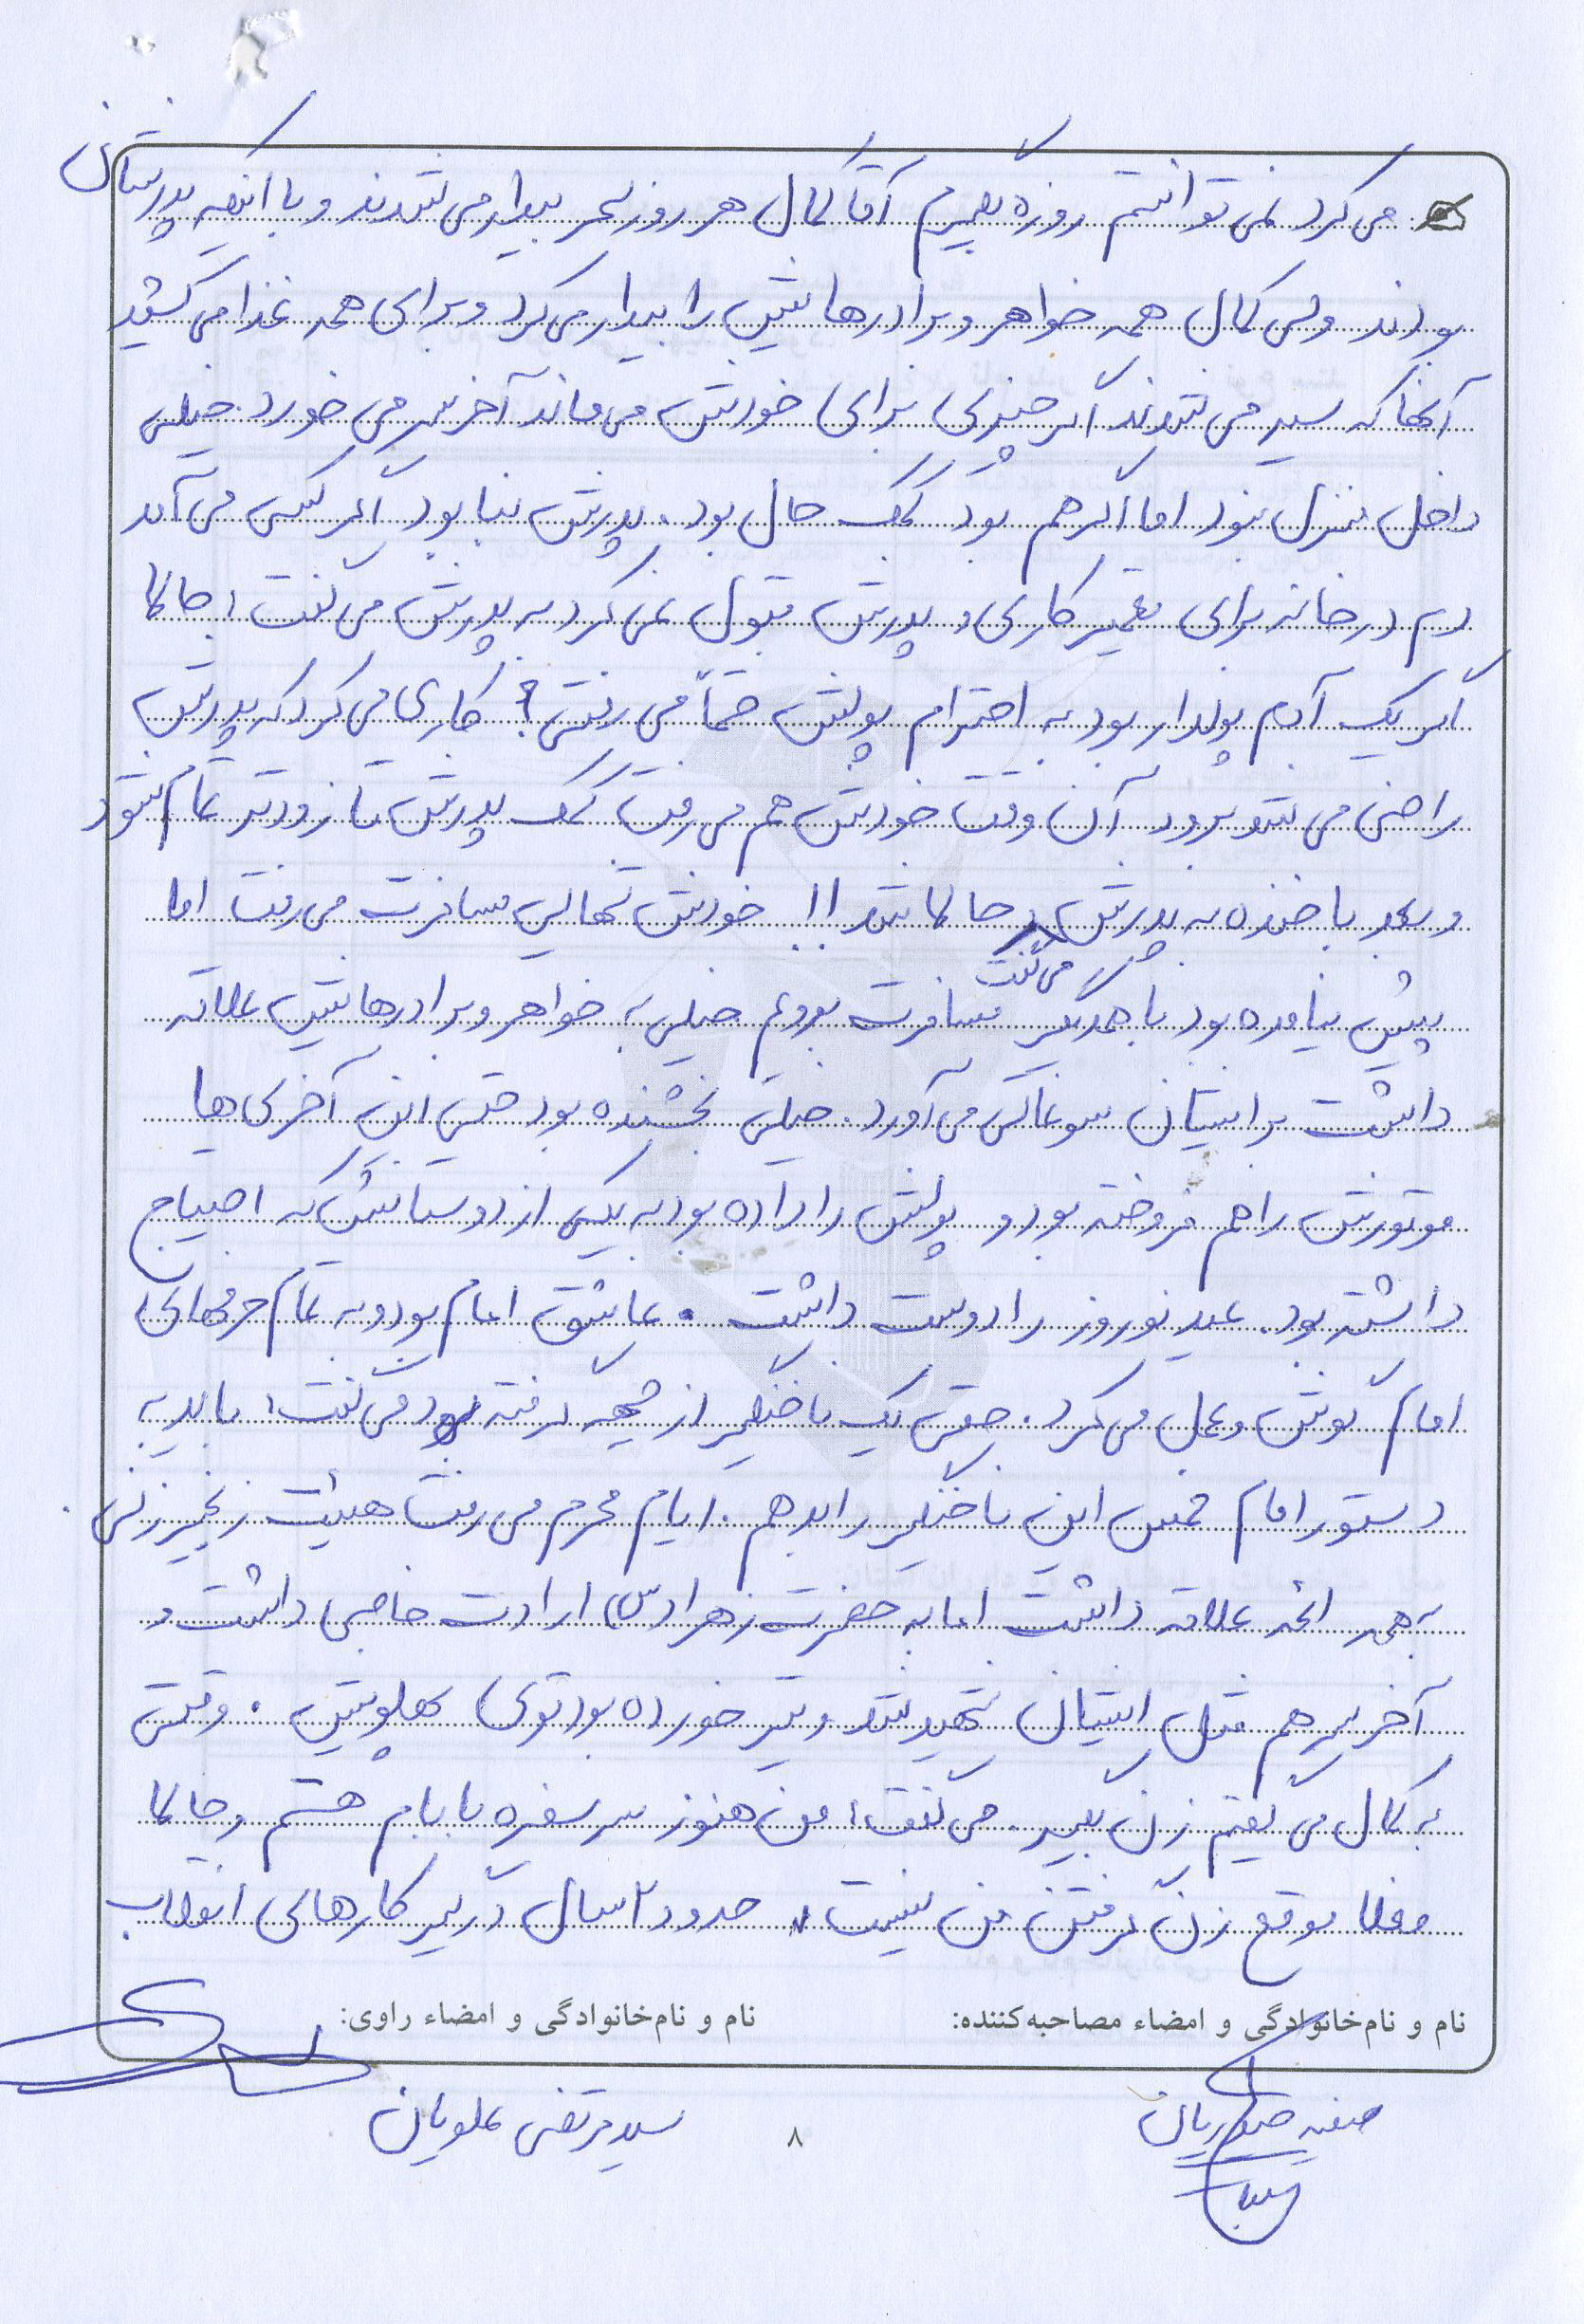 می‌کرد نمی‌توانستم روزه بگیرم آقا کمال هر روز سحر بیدار می‌شدند و با اینکه پدرشان
بودند ولی کمال همه خواهر و برادرهایش را بیدار می‌کرد و برای همه غذا می‌کشید
آنها که سیر می‌شدند اگر چیزی برای خودش می‌ماند آخر سر می‌خورد. خیلی
داخل منزل نبود اما اگر هم بود کمک حال بود. پدرش بنا بود اگر کسی می‌آمد
دم در خانه برای تعمیر کاری و پدرش قبول نمی‌کرد به پدرش می‌گفت: حاکالا
اگر یک آدم پولدار بود به احترام پولش حتماً می‌رفتی؟ کاری می‌کرد که پدرش
راضی می‌شد برود آن وقت خودش هم می‌رفت کمک پدرش تا زودتر تمام شود
و بعد با خنده به پدرش حاکالا شد!! خودش تنهایی مسافرت می‌رفت اما
می‌گفت
پیش نیامده بود با همدیگر مسافرت برویم خیلی به خواهر و برادرهایش علاقه
داشت برایشان سوغاتی می‌آورد. خیلی بخشنده بود حتی این آخری‌ها
موتورش را هم فروخته بود و پولش را داده بود به یکی از دوستانش که احتیاج
داشته بود. عید نوروز را دوست داشت. عاشق امام بود و به تمام حرفهای
امام گوش و عمل می‌کرد. حتی یک ناخنگیر از جبهه گرفته بود می‌گفت: باید به
دستور امام خمس این ناخنگیر را بدهم. ایام محرم می‌رفت هیئت زنجیرزنی.
به همه ائمه علاقه داشت اما به حضرت زهرا (س) ارادت خاصی داشت و
آخر سر هم مثل ایشان شهید شد و تیر خورده بود توی پهلویش. وقتی
به کمال می‌گفتیم زن بگیر. می‌گفت: من هنوز سر سفره بابام هستم و حالا
فعلا موقع زن گرفتن من نیست. حدود ۲ سال درگیر کارهای انقلاب
نام و نام‌خانوادگی و امضاء مصاحبه‌کننده:
نام و نام‌خانوادگی و امضاء راوی:
سید مرتضی علویان
۸